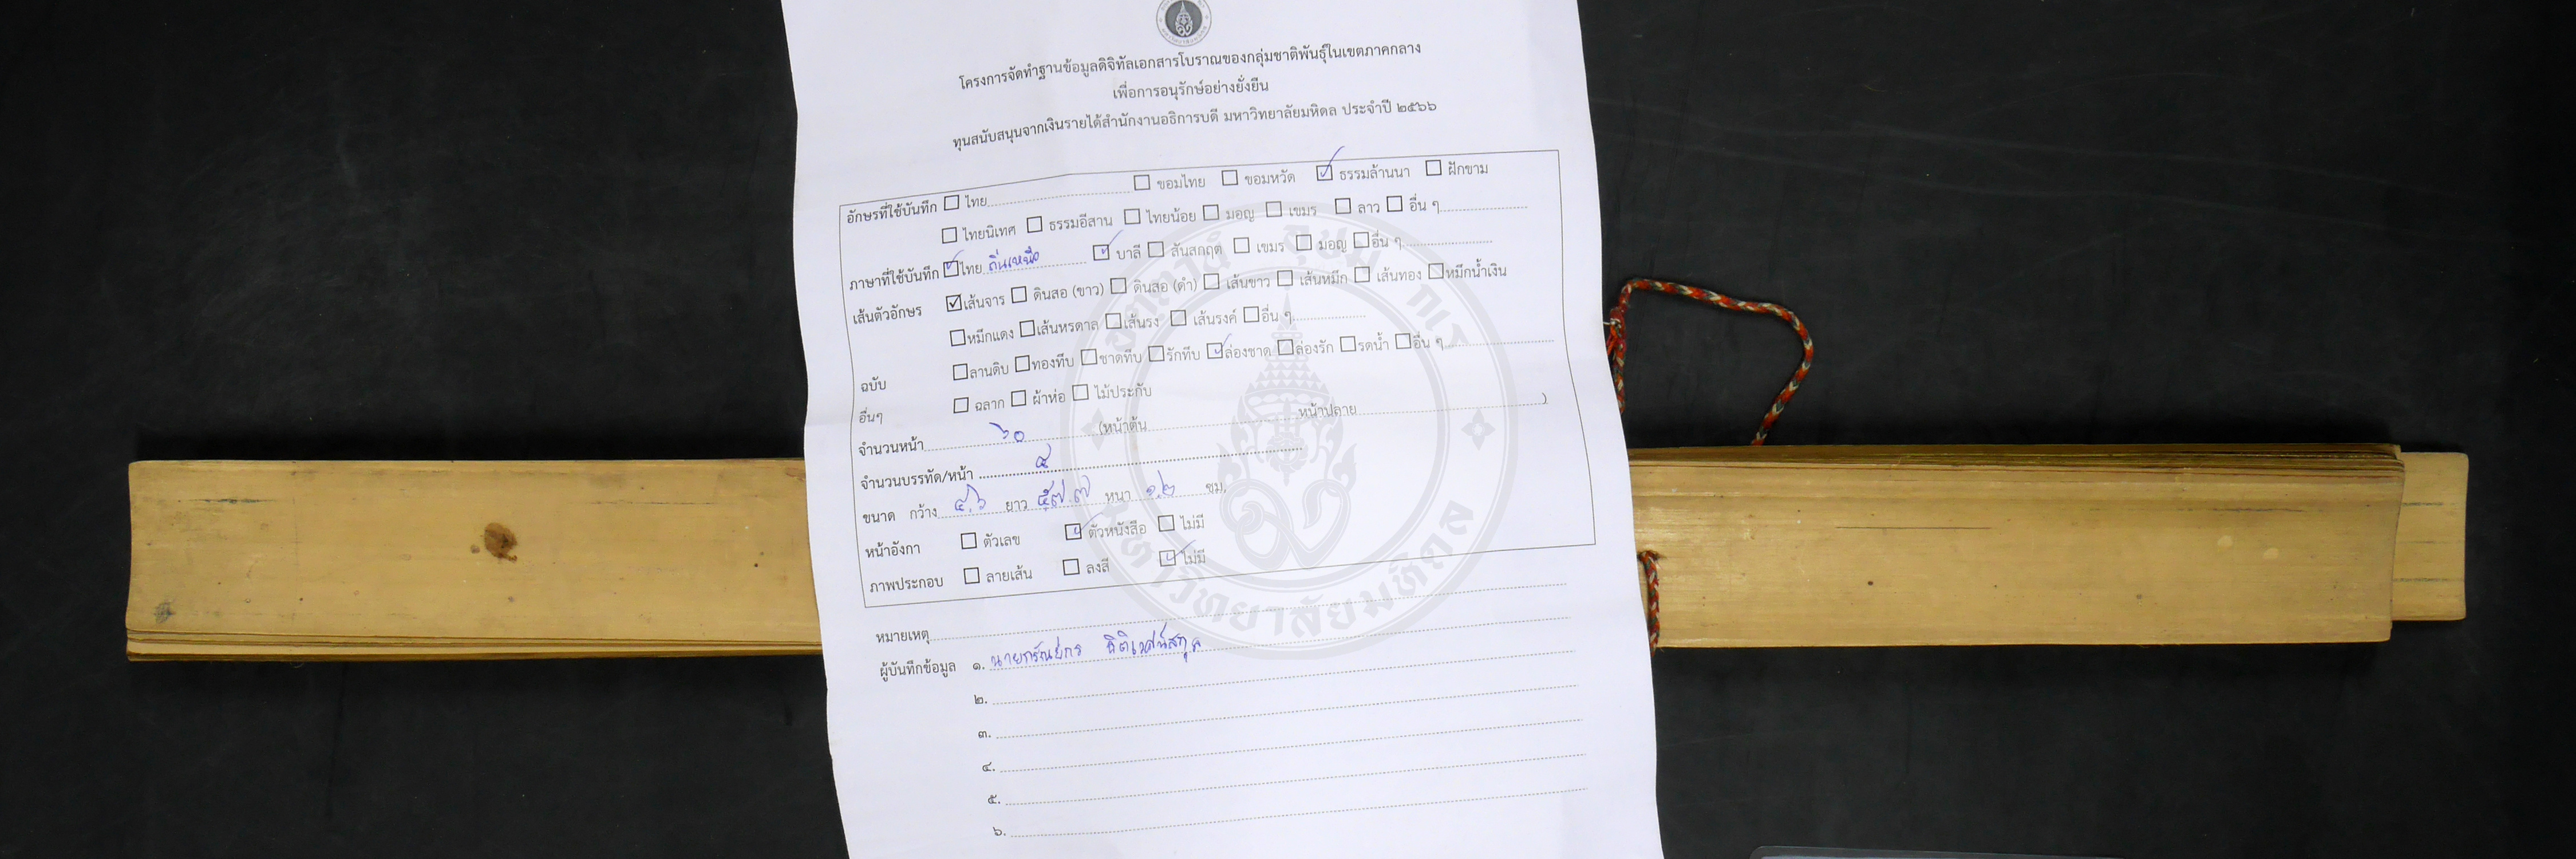 โครงการจัดทำฐานข้อมูลดิจิทัลเอกสารโบราณของกลุ่มชาติพันธุ์ในเขตภาคกลาง
เพื่อการอนุรักษ์อย่างยั่งยืน
ทุนสนับสนุนจากเงินรายได้สำนักงานอธิการบดี มหาวิทยาลัยมหิดล ประจำปี ๒๕๖๖
อักษรที่ใช้บันทึก ☐ ไทย ☐ ขอมไทย ☐ ขอมหวัด ☑ ธรรมล้านนา ☐ ฝักขาม
☐ ไทยนิเทศ ☐ ธรรมอีสาน ☐ ไทยน้อย ☐ มอญ ☐ เขมร ☐ ลาว ☐ อื่น ๆ
ภาษาที่ใช้บันทึก ☑ ไทย ถิ่นเหนือ ☑ บาลี ☐ สันสกฤต ☐ เขมร ☐ มอญ ☐ อื่น ๆ
เส้นตัวอักษร ☑ เส้นจาร ☐ ดินสอ (ขาว) ☐ ดินสอ (ดำ) ☐ เส้นขาว ☐ เส้นหมึก ☐ เส้นทอง ☐ หมึกน้ำเงิน
☐ หมึกแดง ☐ เส้นหรดาล ☐ เส้นรง ☐ เส้นรงค์ ☐ อื่น ๆ
ฉบับ ☐ ลานดิบ ☐ ทองทึบ ☐ ชาดทึบ ☐ รักทึบ ☑ ล่องชาด ☐ ล่องรัก ☐ รดน้ำ ☐ อื่น ๆ
อื่นๆ ☐ ฉลาก ☐ ผ้าห่อ ☐ ไม้ประกับ
จำนวนหน้า ๖๐ (หน้าต้น หน้าปลาย )
จำนวนบรรทัด/หน้า ๕
ขนาด กว้าง ๕.๖ ยาว ๕๗.๗ หนา ๑.๒ ซม.
หน้าอังกา ☐ ตัวเลข ☑ ตัวหนังสือ ☐ ไม่มี
ภาพประกอบ ☐ ลายเส้น ☐ ลงสี ☑ ไม่มี
หมายเหตุ
ผู้บันทึกข้อมูล ๑. นาย
๒.
๓.
๔.
๕.
๖.
มหาวิทยาลัยมหิดล